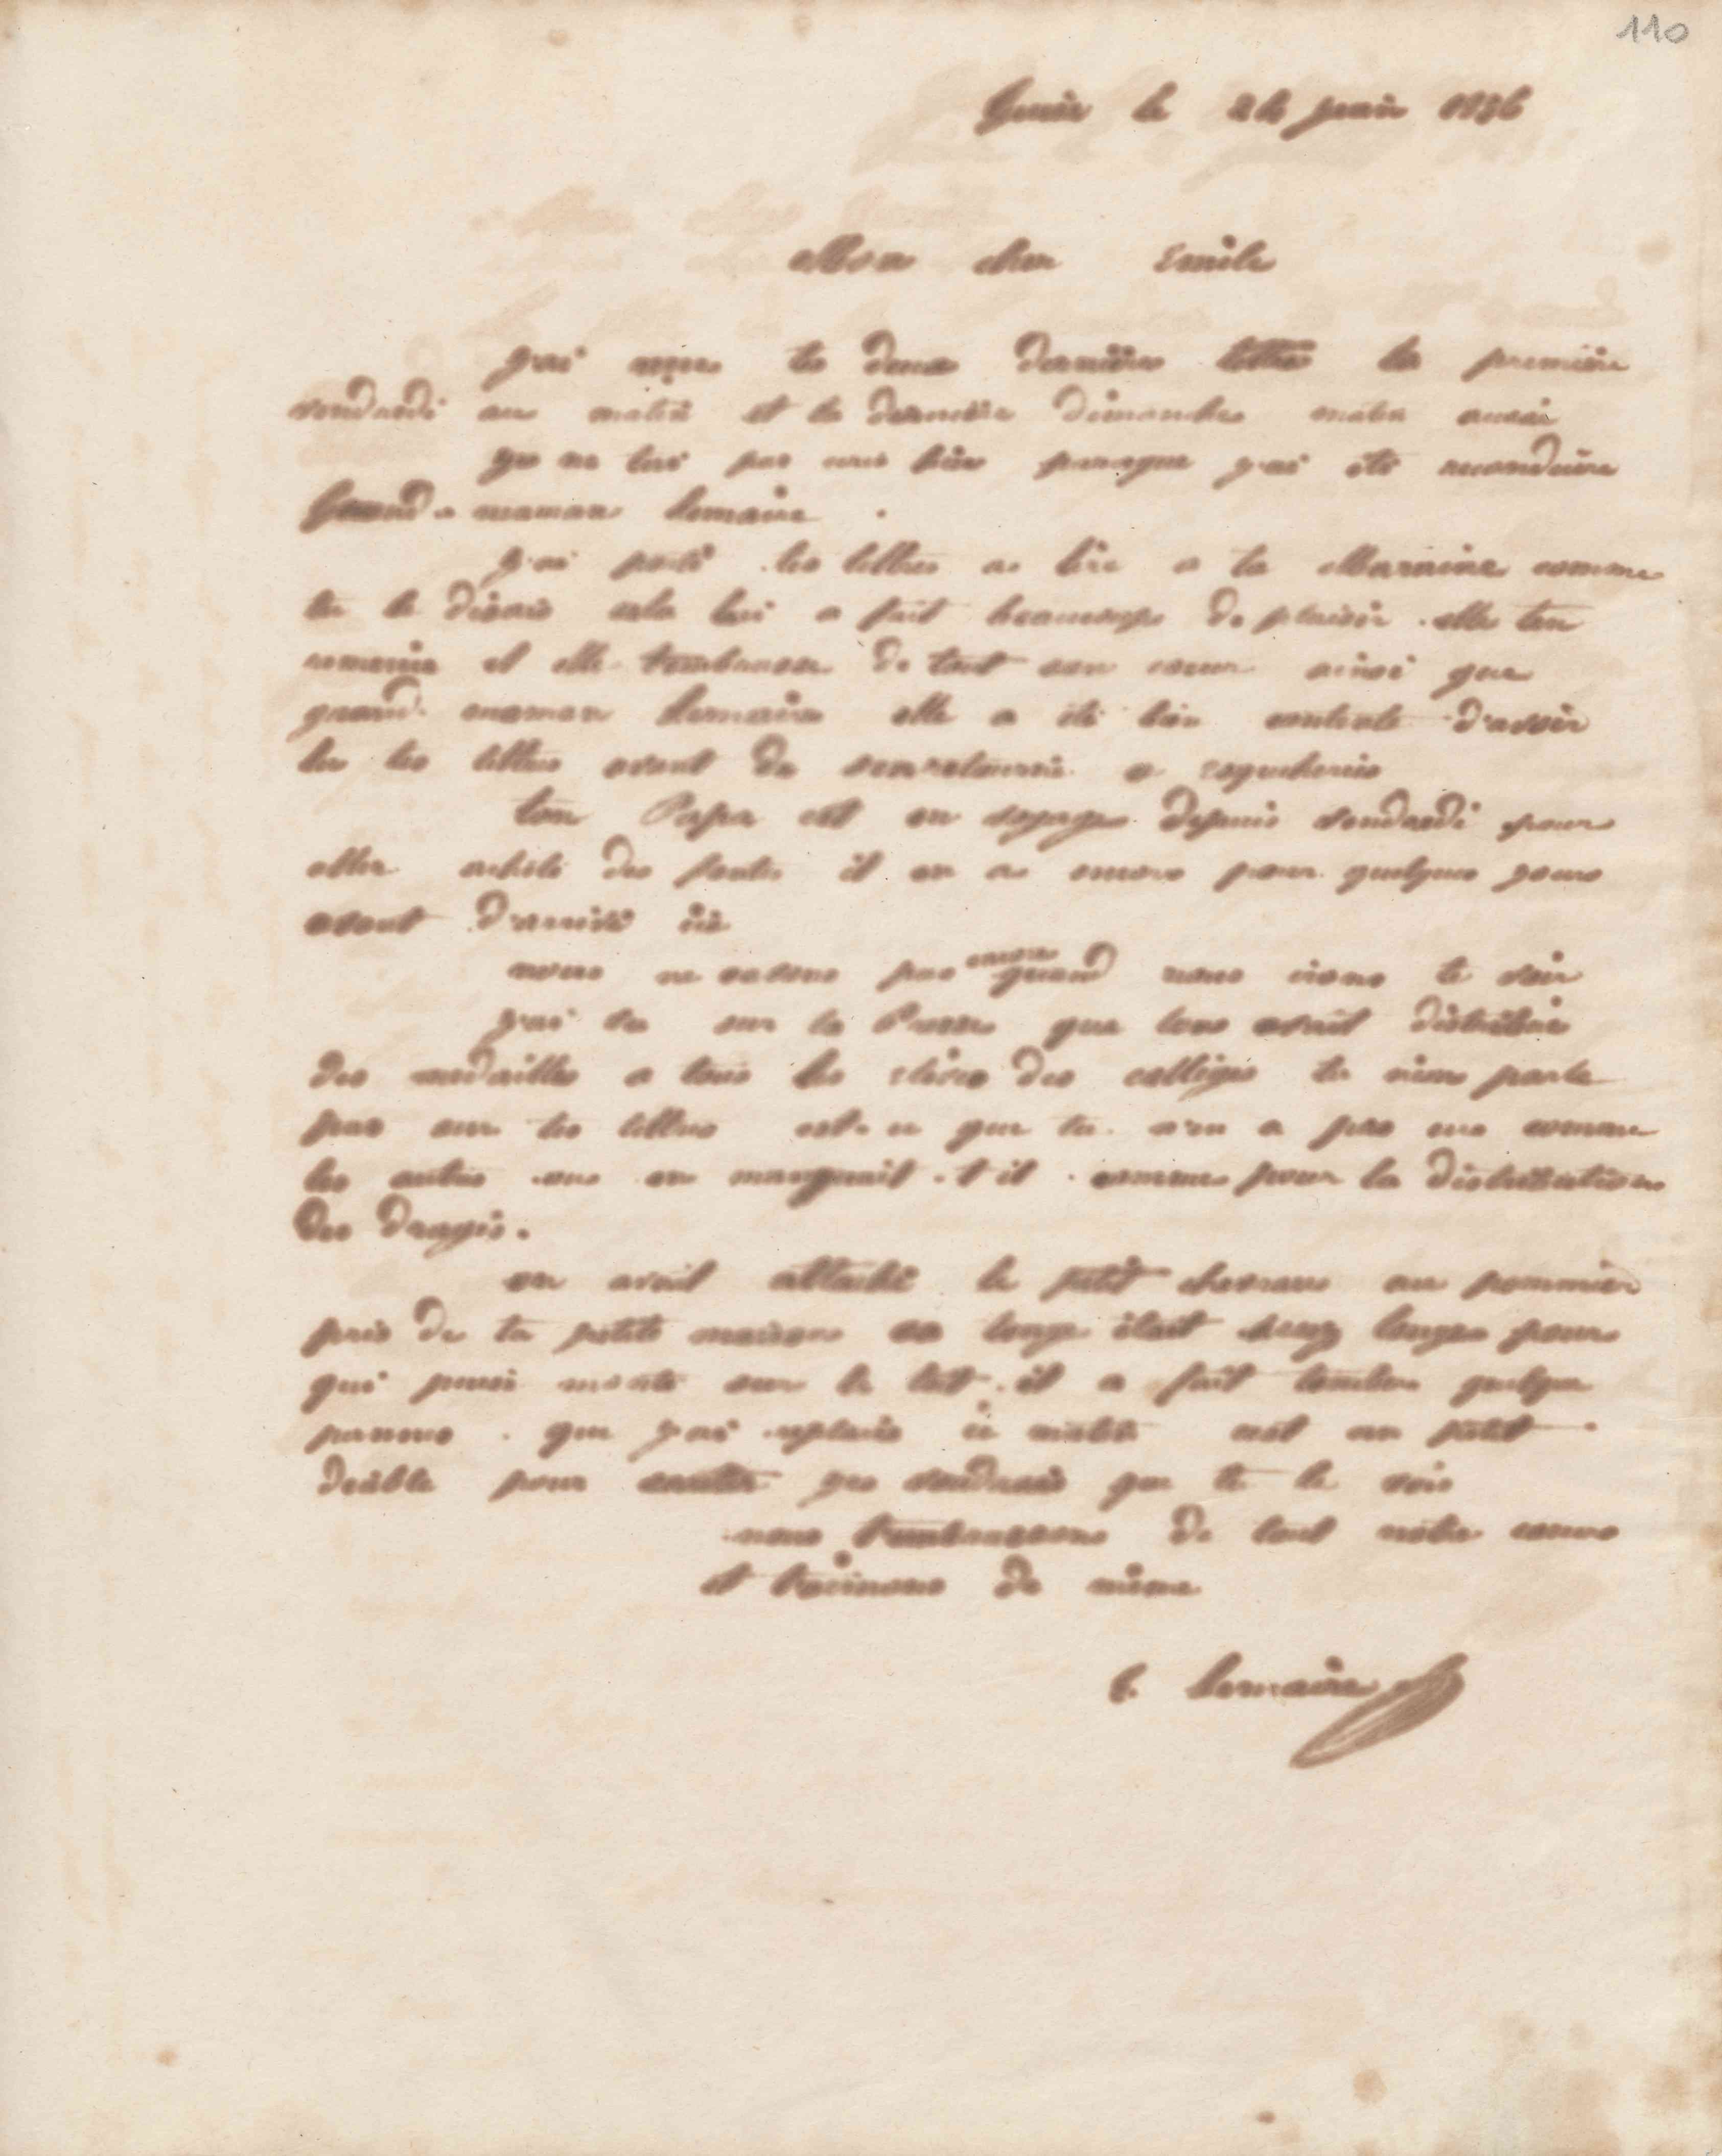 110
Guise le 24 juin 1856
Mon cher Emile
j'ai reçu te deux dernière lettre la première
vendredi au matin et la dernière dimanche matin aussi
je ne tai pas ecris hier parseque j'ai été reconduire
Grand-maman Lemaire .
j'ai porté tes lettres a lire a ta Marraine comme
tu le disais cela lui a fait beaucoup de plaisir . elle ten
remercie et elle tembrasse de tout son coeur ainsi que
grand maman Lemaire elle a été bien contente d'avoir
lu tes lettres avant de senretourné a Esqueheries
ton Papa est en voyage depuis vendredi pour
aller acheté des fontes il en a encore pour quelques jours
avant d'arrivé ici
nous ne savons pas encore quand nous irons te voir
j'ai vu sur la Presse que lons avait distribué
des medailles a tous les élèves des collèges tu nime parle
pas sur tes lettres est-ce que tu n'en a pas eu comme
les autres ou en manquait-t-il comme pour la distribution
des dragés.
on avait attaché le petit chevreau au pommier
près de ta petite maison sa longe était assez longue pour
qui puisi monté sur le toit . il a fait tomber quelque
pannes . que j'ai replacés ce matin cest un petit
diable pour sauter je voudrais que tu le vois
nous tembrassons de tout notre coeur
et de même
E. Lemaire